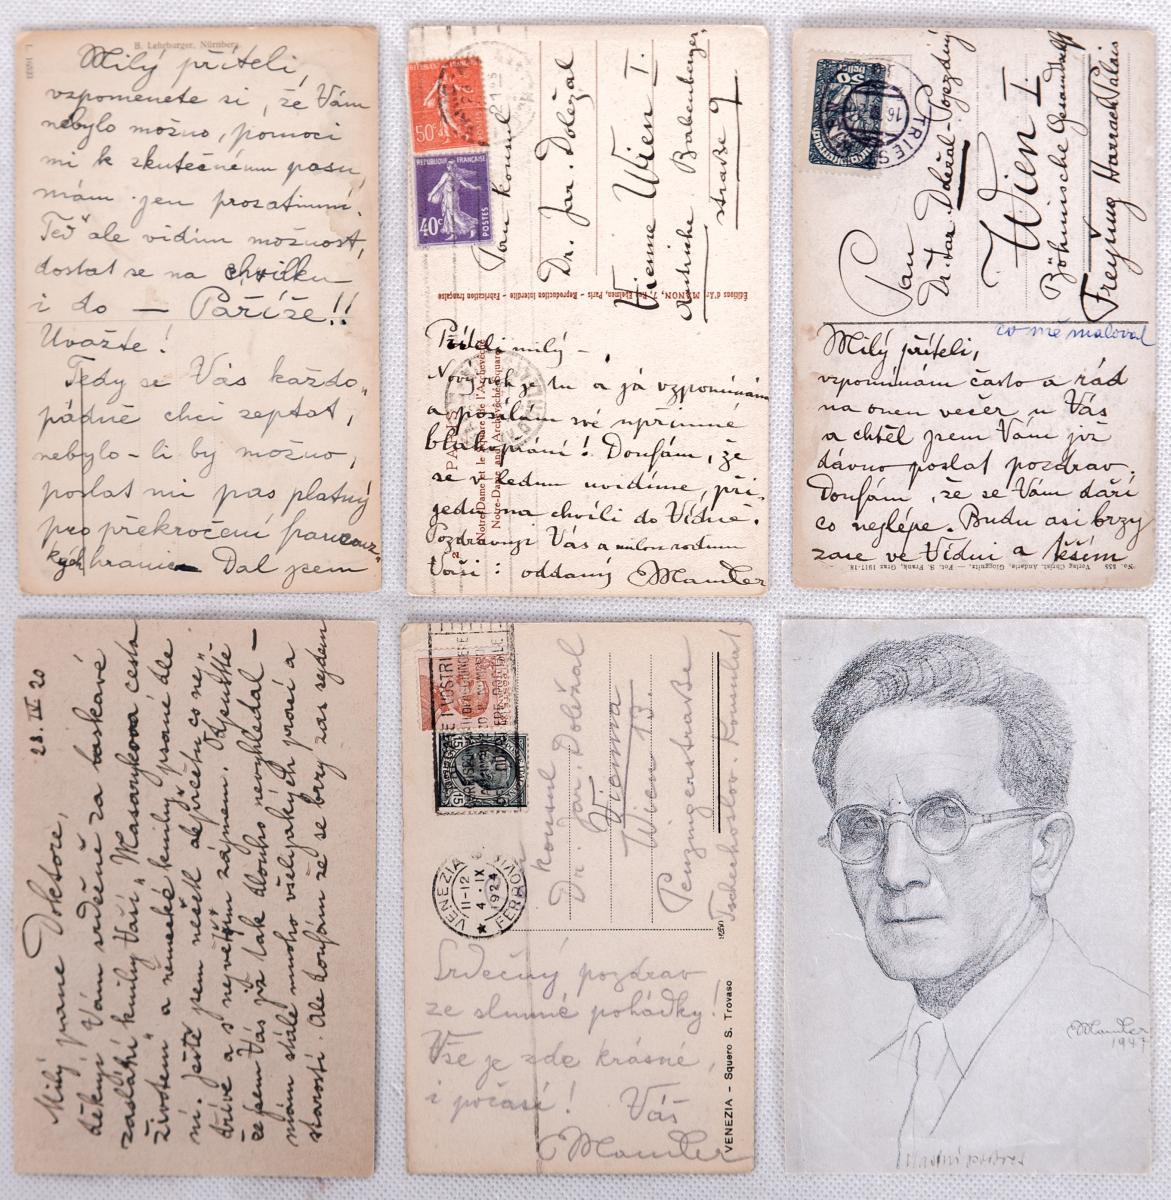 B. Lehrburger, Nürnberg
Milý příteli,
vzpomenete si, že Vám
nebylo možno, pomoci
mi k skutečnému pasu,
mám jen prozatimní.
Teď ale vidím možnost,
dostat se na chvilku
i do — Paříže!!
Uvažte!
Tedy se Vás každo„
pádně chci zeptat,
nebylo-li by možno,
poslat mi pas platný
pro překročení francouz„
kých hranic — Dal jsem
REPUBLIQUE FRANÇAISE
50c
POSTES
REPUBLIQUE FRANÇAISE
40c
POSTES
Pan konsul
Dr. Jar. Doležal
Vienne Wien I.
Autriche Babenberger,
strasse 9
Éditions d'Art MANON, 7, Rue Elzévier, Paris - Reproduction interdite - Fabrication française
PARIS
Notre-Dame et le Square de l'Archevêché
Notre-Dame and Archevêché Square
Příteli milý —,
Nový rok je tu a já vzpomínám
a posílám své upřímné
blahopřání! Doufám, že
se v lednu uvidíme, při„
jedu na chvíli do Vídně.
Pozdravuji Vás a milou rodinu
Vaši: oddaný
TRIESTE
16
Pan
Dr. Jar. Doležal-Pojezdný
Wien I.
Böhmische Gesandtsch
Freyung Harrach Palais
co mě maloval
Milý příteli,
vzpomínám často a rád
na onen večer u Vás
a chtěl jsem Vám již
dávno poslat pozdrav.
Doufám, že se Vám daří
co nejlépe. Budu asi brzy
zase ve Vídni a těším
No. 858 Verlag Christ. Andaria, Gloggnitz. — Fot. S. Frank, Graz 1917-18.
28. IV 20
Milý pane Doktore,
děkuji Vám srdečně za laskavé
zaslání knihy Vaší „Masarykova cesta
životem" a německé knihy psané dle
ní. Ještě jsem nečetl ale přečtu co nej„
dříve a s největším zájmem. Odpusťte
že jsem Vás již tak dlouho nevyhledal —
mám stále mnoho všelijakých prací a
starostí. Ale doufám že se brzy zas sejdem
VENEZIA
11-12
4·IX
1924
FERROVIA
konsul
Dr. Jar. Doležal
Vienna
Wien 13.
Penzingerstraße
Tschechoslov. Konsulat
VENEZIA - Squero S. Trovaso
Srdečný pozdrav
ze slunné pohádky!
Vše je zde krásné,
i počasí! Váš
1947